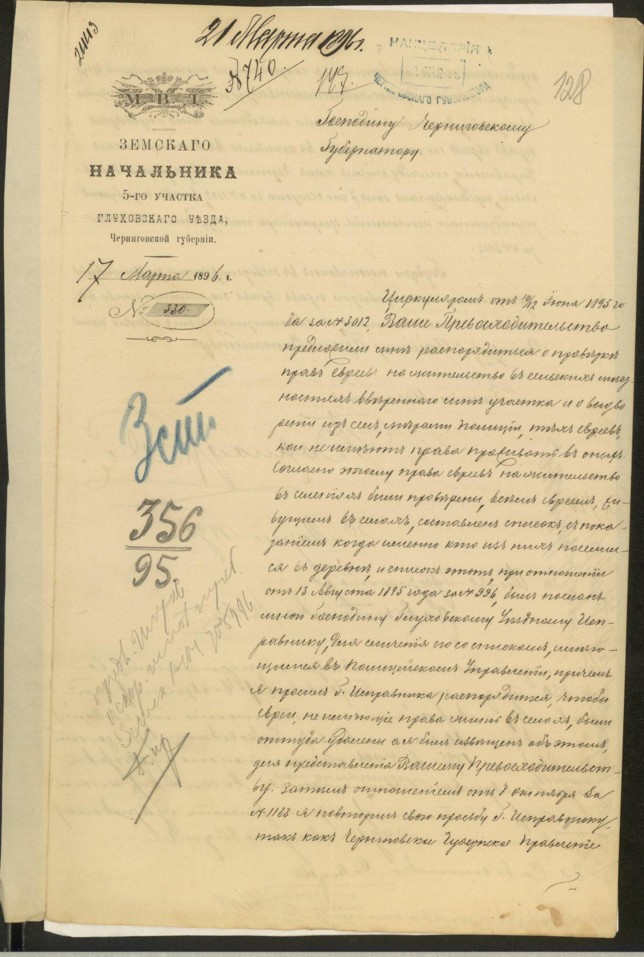 21 Марта 1896 г.
№ 740
КАНЦЕЛЯРІЯ
147.
128
М. В. Д.
ЗЕМСКАГО
НАЧАЛЬНИКА
5-ГО УЧАСТКА
ГЛУХОВСКАГО УѢЗДА,
Черниговской губерніи.
17 Марта 1896 г.
№ 330
Господину Черниговскому
Губернатору.
Циркуляромъ отъ Іюня 1895 го
да за № 3012, Ваше Превосходительство
предложили мнѣ распорядиться о провѣркѣ
правъ евреевъ на жительство въ сельскихъ мѣст
ностяхъ ввѣреннаго мнѣ участка и о выдво
реніи изъ селъ, мѣрами полиціи, тѣхъ евреевъ,
кои не имѣютъ права проживать въ оныхъ.
Согласно этому права евреевъ на жительство
въ селеніяхъ были провѣрены, всѣмъ евреямъ, жи-
вущимъ въ селахъ, составленъ списокъ, съ пока
заніемъ когда именно кто изъ нихъ поселил
ся въ деревнѣ, и списокъ этотъ, при отношеніи
отъ 13 Августа 1895 года за № 996, былъ посланъ
мною Господину Глуховскому Уѣздному Исп-
равнику, для сличенія со спискомъ, имѣю-
щимся въ Полицейскомъ Управленіи, причемъ
я просилъ Г. Исправника распорядиться, чтобы
евреи, не имѣющіе права жить въ селахъ, были
оттуда удалены а я былъ извѣщенъ объ этомъ,
для представленія Вашему Превосходительст-
ву. Затѣмъ отношеніемъ отъ 8 октября за
№ 1183 я повторилъ свою просьбу Г. Исправнику,
такъ какъ Черниговское Губернское Правленіе
3 ст.
356
95.